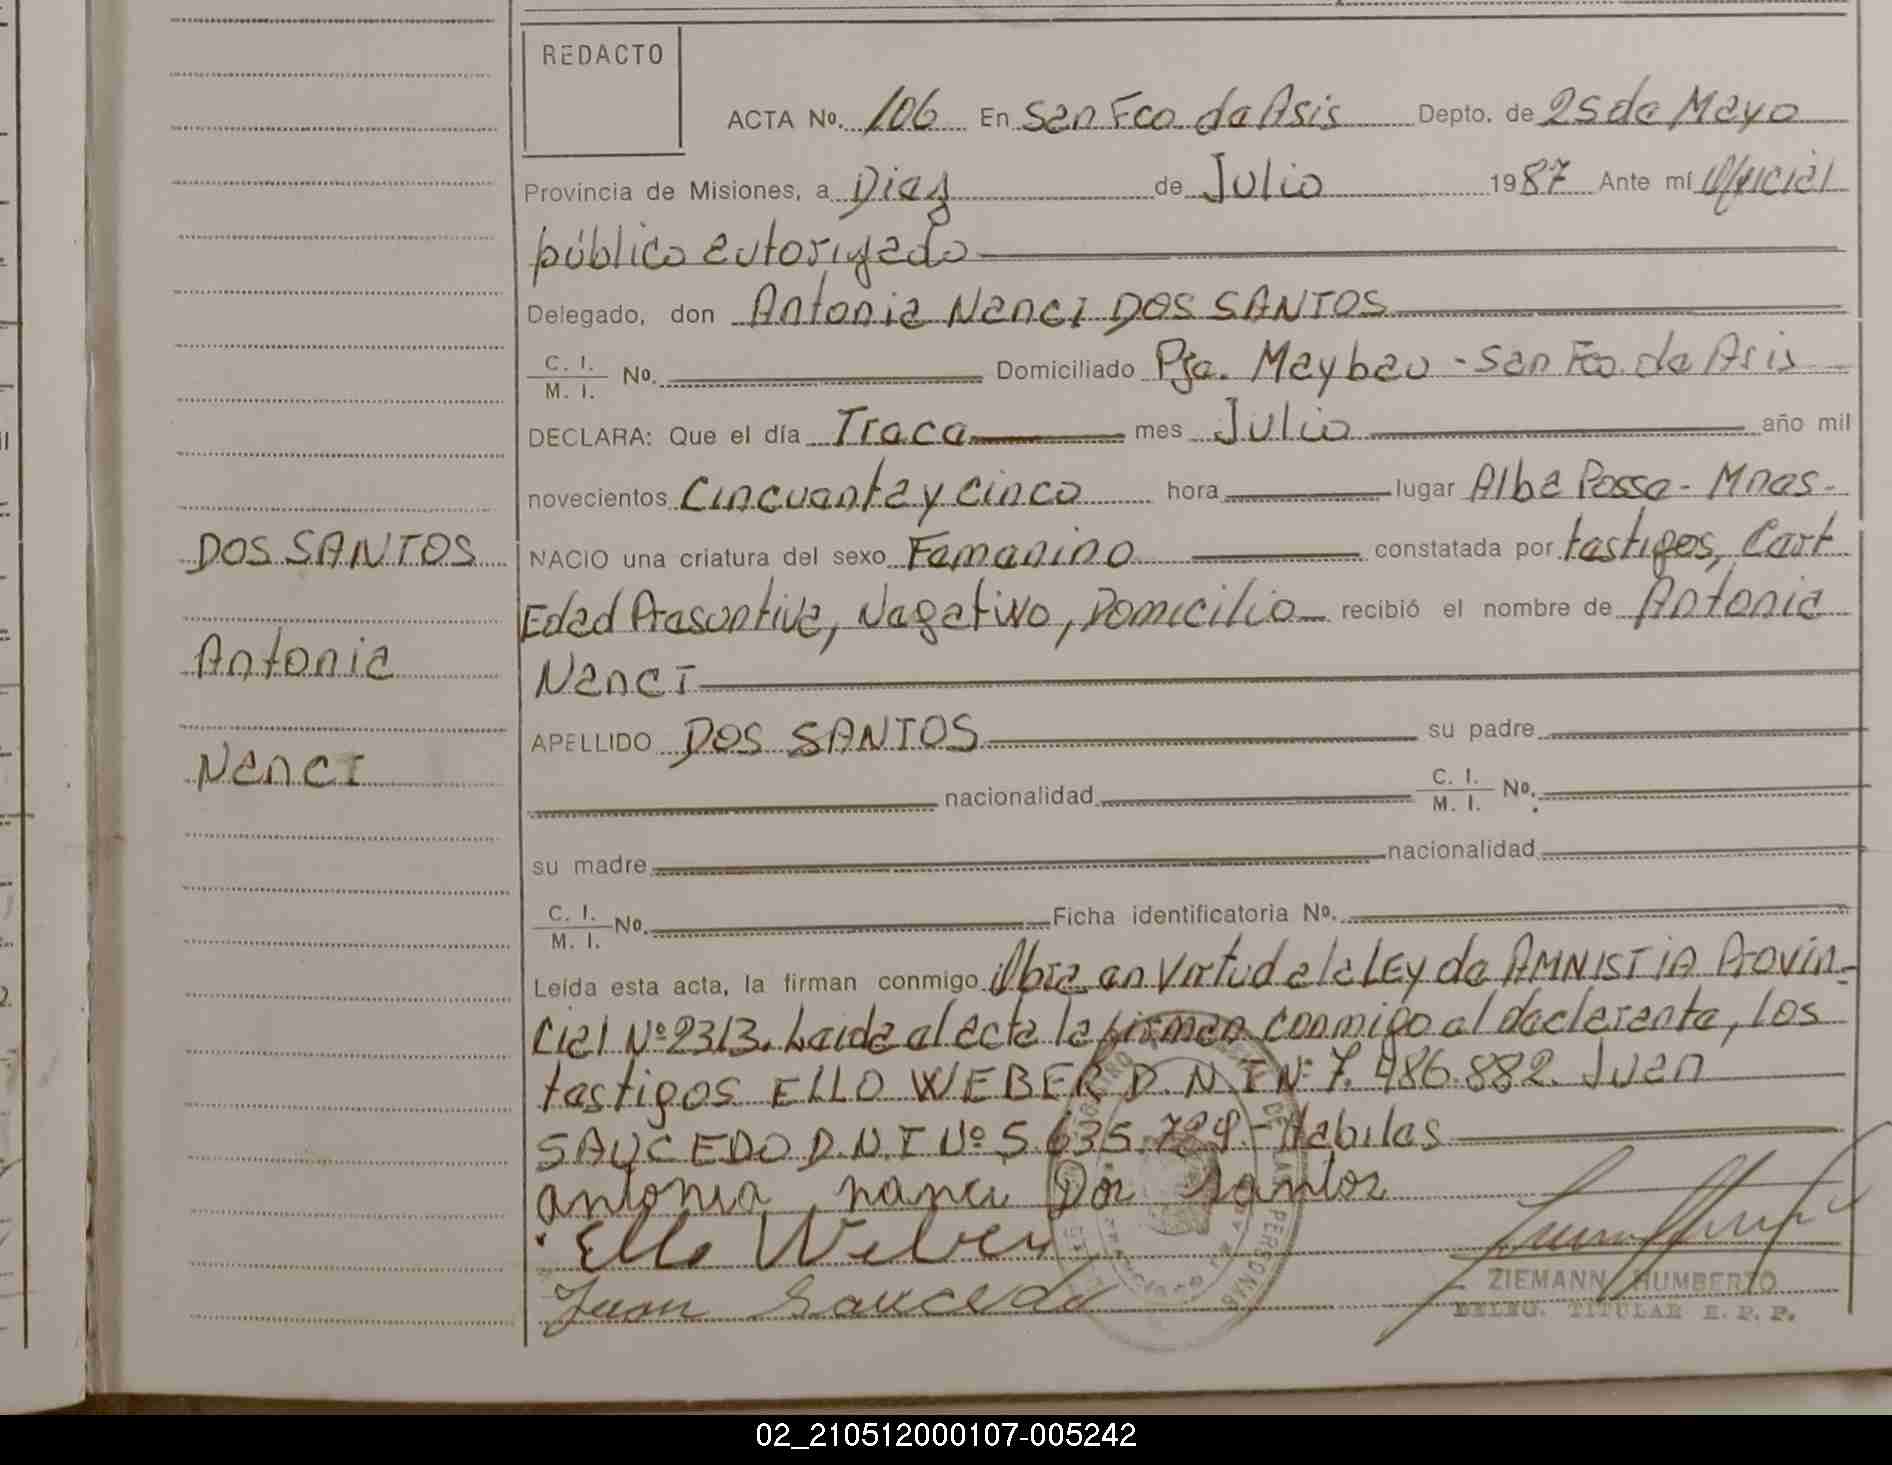 REDACTO
ACTA No. 106 En San Fco de Asis Depto. de 25 de Mayo
Provincia de Misiones, a Diez de Julio 1987 Ante mí Oficial
público autorizado
Delegado, don Antonia Nanci DOS SANTOS
C. I.
M. I. No. Domiciliado Pje. Maybau - San Fco. de Asis
DECLARA: Que el día Trece mes Julio año mil
novecientos Cincuenta y cinco hora lugar Alba Posse - Mnes -
DOS SANTOS
NACIO una criatura del sexo Femenino constatada por testigos, Cert
Edad Presuntiva, Negativo, Domicilio recibió el nombre de Antonia
Antonia
Nanci
APELLIDO DOS SANTOS su padre
Nanci
nacionalidad C. I.
M. I. No.
su madre nacionalidad
C. I.
M. I. No. Ficha identificatoria No.
Leída esta acta, la firman conmigo en virtud a la LEy de AMNISTIA Provin-
cial Nº 2313. Leida el acta la firman conmigo el declarante, los
testigos ELLO WEBER D.N.I Nº 7.486.882. Juan
SAUCEDO D.N.I Nº 5.635. Habiles
antonia nanci Dos Santos
Ello Weber
Juan Saucedo
ZIEMANN HUMBERTO
DELEG. TITULAR R. P. P.
02_210512000107-005242